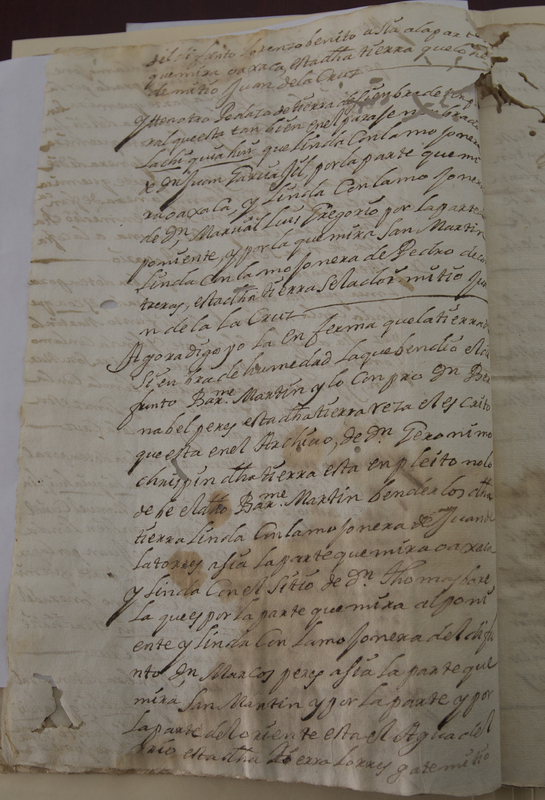 del difunto lorenzo benito asia la parte
que mira oaxaca, esta dha tierra que lo
de mi tio Juan de la Cruz
Yten otro Pedazo de tierra de sienbra de
ral que esta tan bien en el paraje nonbrado
que linda con la mojonera
Dn Juan Garcia Gil por la parte que mi
ra oaxaca, y linda Con la mojonera
de Dn Marcial Luis Gregorio por la parte de
poniente, y por la que mira San Martin
linda con la mojonera de Pedro de con
treras, esta dha tierra Se la dio mi tio Jua
n de la la Cruz
Agora digo yo la Enferma que la tierra de
Sienbra de humedad la que bendio el di
funto Barme Martin y lo Conpro Dn Ber
nabel peres esta dha tierra reza el escrito
que esta en el Archivo, de Dn Geronimo
chrispin dha tierra esta en pleito no lo
debe el dtto Barme Martin bender los dha
tierra linda Con la mojonera de Juan de
la tores asia la parte que mira oaxaca
y linda Con el Sitio de Dn Thomas bare
la que es por la parte que mira al poni
ente y linda Con la mojonera del difu
nto Dn Marcos peres asia la parte que
mira San Martin y por la parte y por
la parte del oriente esta el Agua del
Rio esta dha tierra lo rres gate mi tio